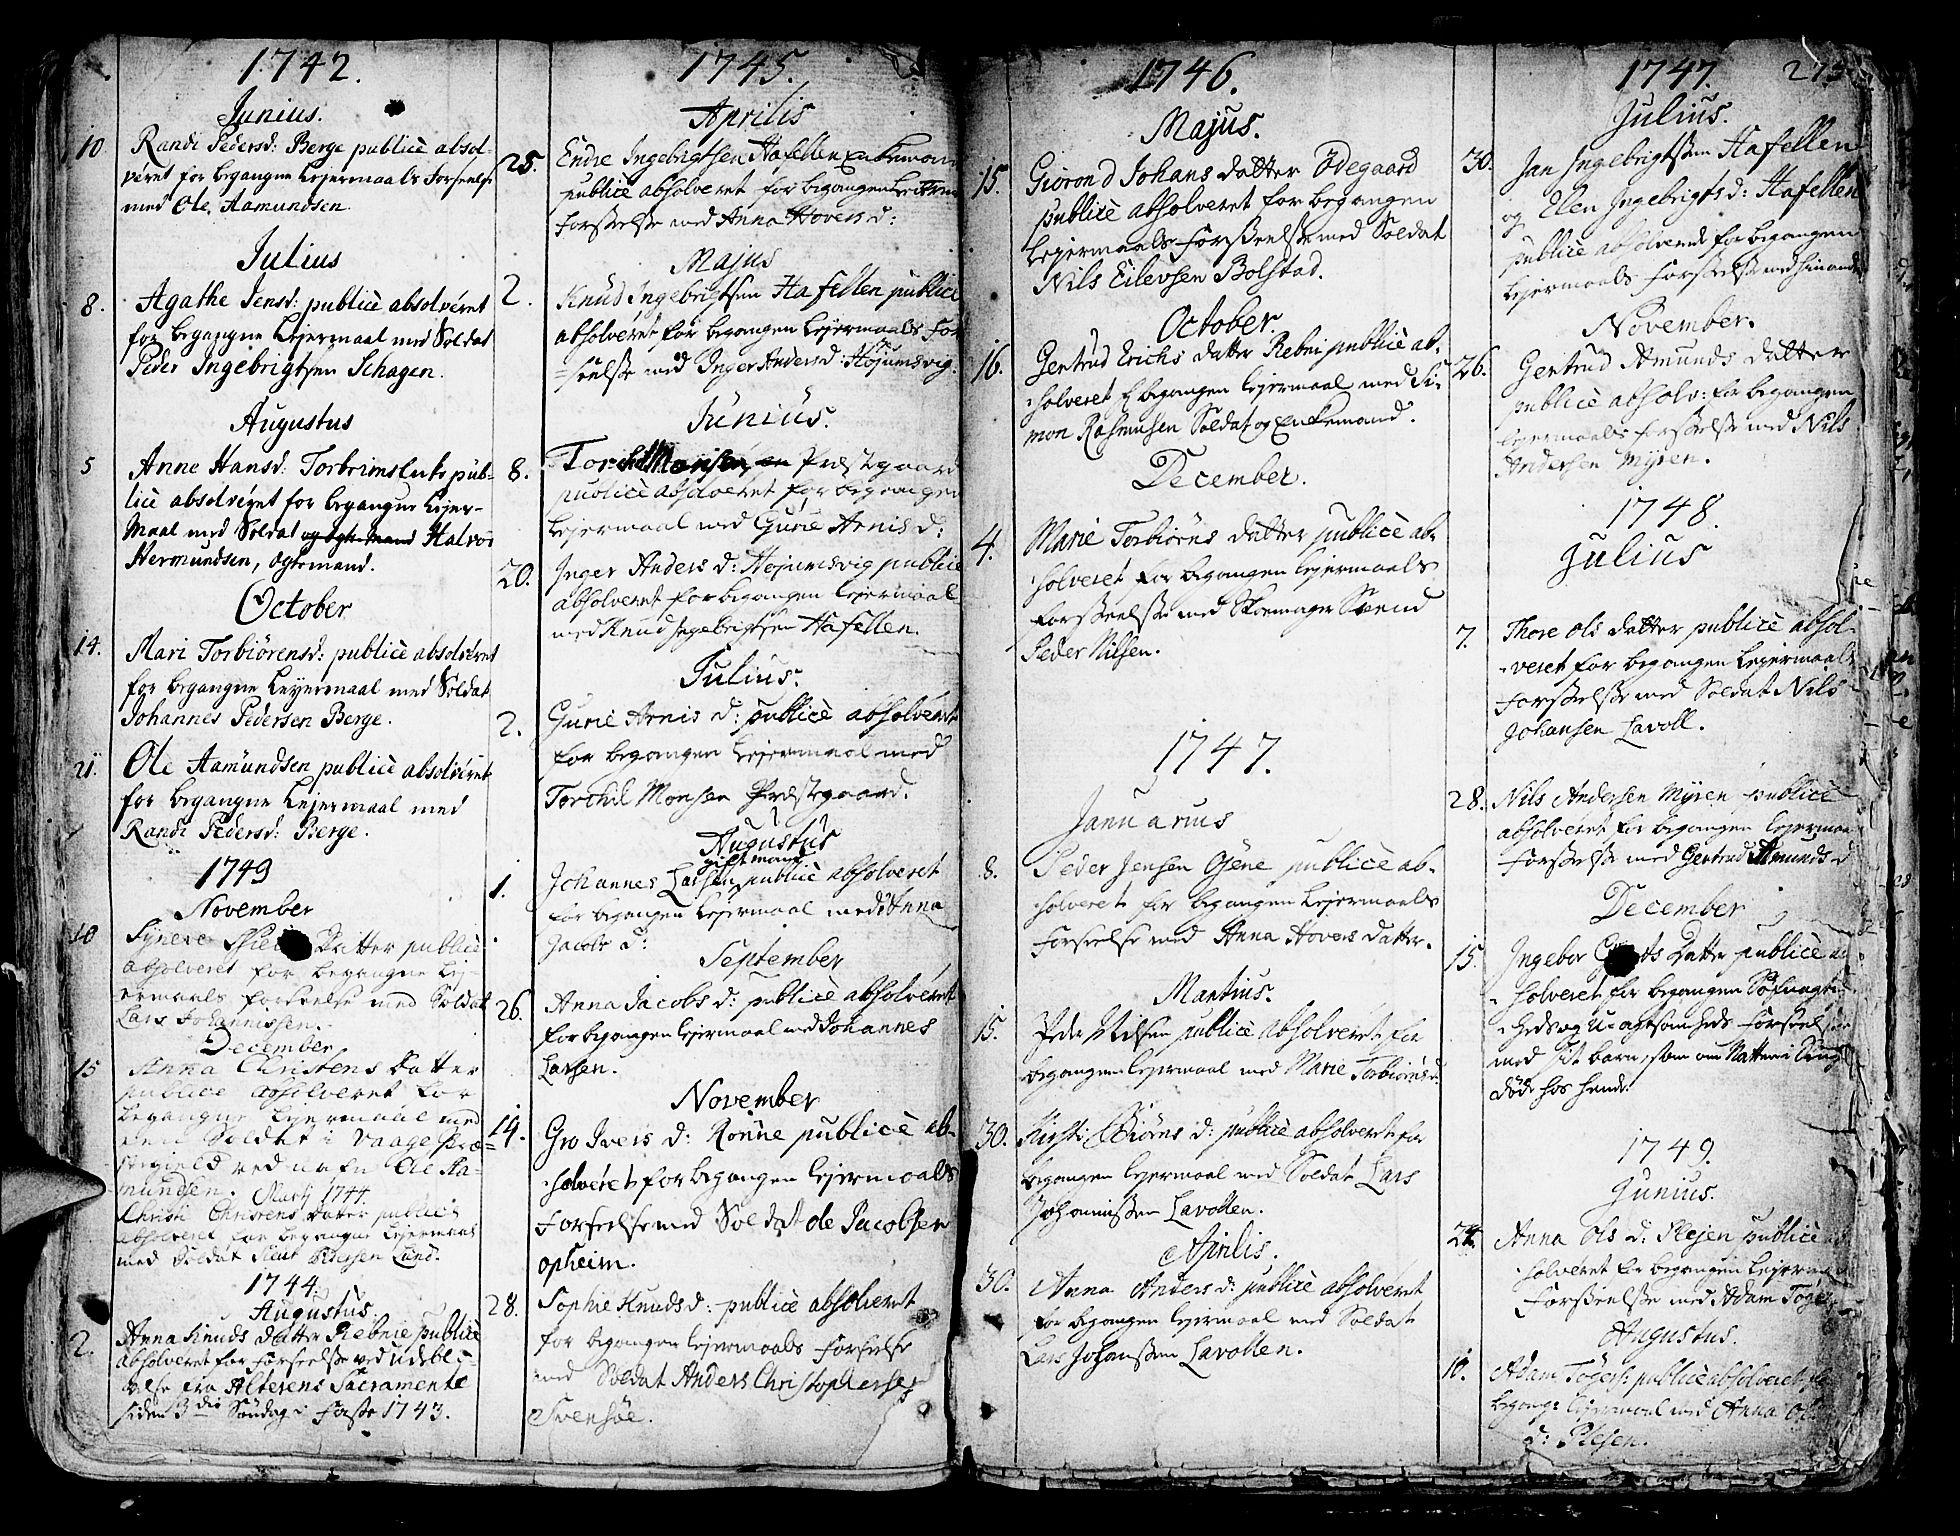 1742.
Junius.
10 Randi Pedersd: Berge publicè absol-
veret for begangne Lejermaals Forseelse
med Ole Aamundsen.
Julius
8. Agathe Jensd: publicè absolveret
for begangne Lejermaal med Soldat
Peder Ingebrigtsen Schagen.
Augustus
5 Anne Hansd: pub-
licè absolveret for begangne Lejer-
maal med Soldat og Halvor
Hermundsen, Ægtemand.
October
14. Mari Torbiørensd: publicè absolveret
for begangne Leyermaal med Soldat
Johannes Pedersen Berge.
21. Ole Aamundsen publicè absolveret
for begangne Lejermaal med
Randi Pedersd: Berge.
1743
November
10 Syneve Datter publicè
absolveret for begangne Lej-
ermaals forseelse med Soldat
Lars Johannissen.
December
15 Anna Christens Datter
publice absolveret for
begangne Lejermaal med
een Soldat i Vaage Præ-
stegield ved nafn Ole Aa-
mundsen. Martj 1744.
Christi Christens Datter publicè
absolveret for begangne Lejermaal
med Soldat Pedersen Lund.
1744.
Augustus.
2. Anna Knuds datter Rebnie publicè
absolveret for forseelse ved udebli-
velse fra Alterens Sacramente
siden 3die Søndag i Faste 1743.
1745.
Aprilis
25. Endre Ingebrigtsen Hafellen Enkemand
publicè absolveret for begangen Lejerm
Forseelse med Anna Hovers d:
Majus
2. Knud Ingebrigtsen Hafellen publicè
absolveret for begangen Lejermaals For
-seelse med Inger Anders d: Højumsvig.
Junius.
8. Torchil Monsen Præstegaard
publicè absolveret for begangen
Lejermaal med Gurie Arnis d:
20. Inger Anders d: Højumsvig publicè
absolveret for begangen Lejermaal
med Knud Ingebrigtsen Hafellen.
Julius.
2. Gurie Arnis d: publicè absolveret
for begangen Lejermaal med
Torchil Monsen Præstegaard.
Augustus
gift mand
1. Johannes Larsen publicè absolveret
for begangen Lejermaal med Anna
Jacobs d:
September
26. Anna Jacobs d: publicè absolveret
for begangen Lejermaal med Johannes
Larsen.
November
14. Gro Ivers d: Rønne publicè ab-
solveret for begangen Lejermaals
Forseelse med Soldat Ole Jacobsen
opheim.
28. Sophie Knuds d: publice absolveret
for begangen Lejermaals Forseelse
med Soldat Anders Christophersen
Svensøe.
1746.
Majus.
15. Giørond Johans datter Ødegaard
publicè absolveret for begangen
Lejermaals Forseelse med Soldat
Nils Eilevsen Bolstad.
October.
16. Gertrud Erichs datter Rebni publicè ab-
solveret f begangen Lejermaal med Si-
mon Rasmusen Soldat og Enkemand.
December.
4. Marie Torbiørns datter publicè ab-
solveret for begangen Lejermaals
Forseelse med Skomager Svend
Peder Nilsen.
1747.
Januarius
8. Peder Jensen publicè ab-
solveret for begangen Lejermaals
Forseelse med Anna Hovers datter.
Martius.
15. Peder Nilsen publicè absolveret for
begangen Lejermaal med Marie Torbiørns d:
30. Kirsti Biørns d: publicè absolveret for
begangen Lejermaal med Soldat Lars
Johannissen Lavollen.
Aprilis.
30. Anna Anders d: publicè absolveret
for begangen Lejermaal med Soldat
Lars Johanssen Lavollen.
1747. 275
Julius.
30. Jan Ingebrigtsen Hafellen
og Elen Ingebrigts d: Hafellen
publicè absolveret for begangen
Lejermaals Forseelse med hinanden
November.
26. Gertrud Amunds datter
publicè absolv: for begangen
Lejermaals Forseelse med Nils
Andersen Myren.
1748.
Julius
7. Thore Ols datter publicè absol-
veret for begangen Lejermaals
Forseelse med Soldat Nils
Johansen Lavoll.
28. Nils Andersen Myren publicè
absolveret for begangen Lejermaa
Forseelse med Gertrud Amunds d
December
15. Ingebor Datter publicè ab
solveret for begangen
heds og U-agtsomheds Forseelse
med sit barn, som om Natten i
døde hos hende.
1749.
Junius.
24. Anna Ols d: Plejen publicè ab
solveret for begangen Lejermaals
Forseelse med Adam
Augustus.
10. Adam publicè absolveret for
begang: Lejermaal med Anna Ols
d: Plesen.